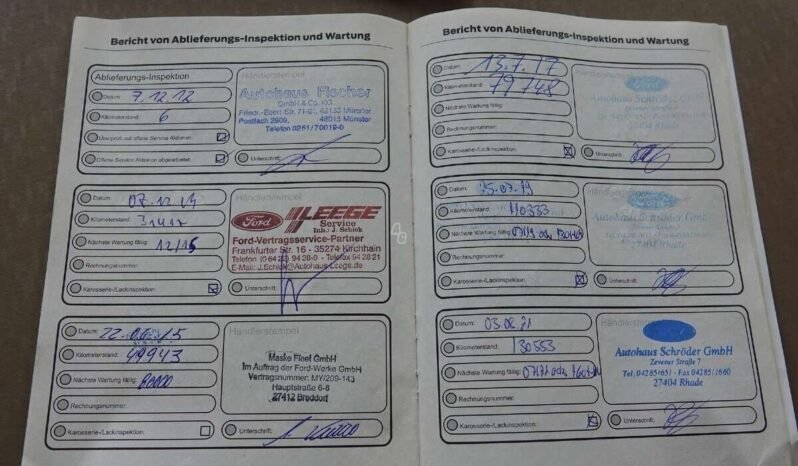 Bericht von Ablieferungs-Inspektion und Wartung
Ablieferungs-Inspektion
Datum: 7.12.12
Kilometerstand: 6
Überprüft auf offene Service Aktionen:
Offene Service Aktion abgearbeitet:
Händlerstempel
Autohaus Fischer
GmbH & Co. KG
Friedr.-Ebert-Str. 71-91, 48153 Münster
Postfach 2909, 48016 Münster
Telefon 0251/70019-0
Unterschrift:
Datum: 07.12.14
Kilometerstand: 31417
Nächste Wartung fällig: 12/15
Rechnungsnummer:
Karosserie-/Lackinspektion:
Händlerstempel
Ford LEEGE
Service
Inh.: J. Schiek
Ford-Vertragsservice-Partner
Frankfurter Str. 16 - 35274 Kirchhain
Telefon (0 64 22) 94 28-0 - Telefax 94 28 21
E-Mail: J.Schiek@Autohaus-Leege.de
Unterschrift:
Datum: 22.06.15
Kilometerstand: 49943
Nächste Wartung fällig: 80000
Rechnungsnummer:
Karosserie-/Lackinspektion:
Händlerstempel
Maske Fleet GmbH
Im Auftrag der Ford-Werke GmbH
Vertragsnummer: MY/209-143
Hauptstraße 6-8
27412 Breddorf
Unterschrift:
Bericht von Ablieferungs-Inspektion und Wartung
Datum: 13.7.17
Kilometerstand: 79148
Nächste Wartung fällig:
Rechnungsnummer:
Karosserie-/Lackinspektion:
Ford
Autohaus Schröder GmbH
27404 Rhade
Unterschrift:
Datum: 25.07.19
Kilometerstand: 110333
Nächste Wartung fällig:
Rechnungsnummer:
Karosserie-/Lackinspektion:
Ford
Autohaus Schröder GmbH
27404 Rhade
Unterschrift:
Datum: 03.08.21
Kilometerstand: 130553
Nächste Wartung fällig:
Rechnungsnummer:
Karosserie-/Lackinspektion:
Händlerstempel
Autohaus Schröder GmbH
Zevener Straße 7
Tel. 04285/651 - Fax 04285/1660
27404 Rhade
Unterschrift: